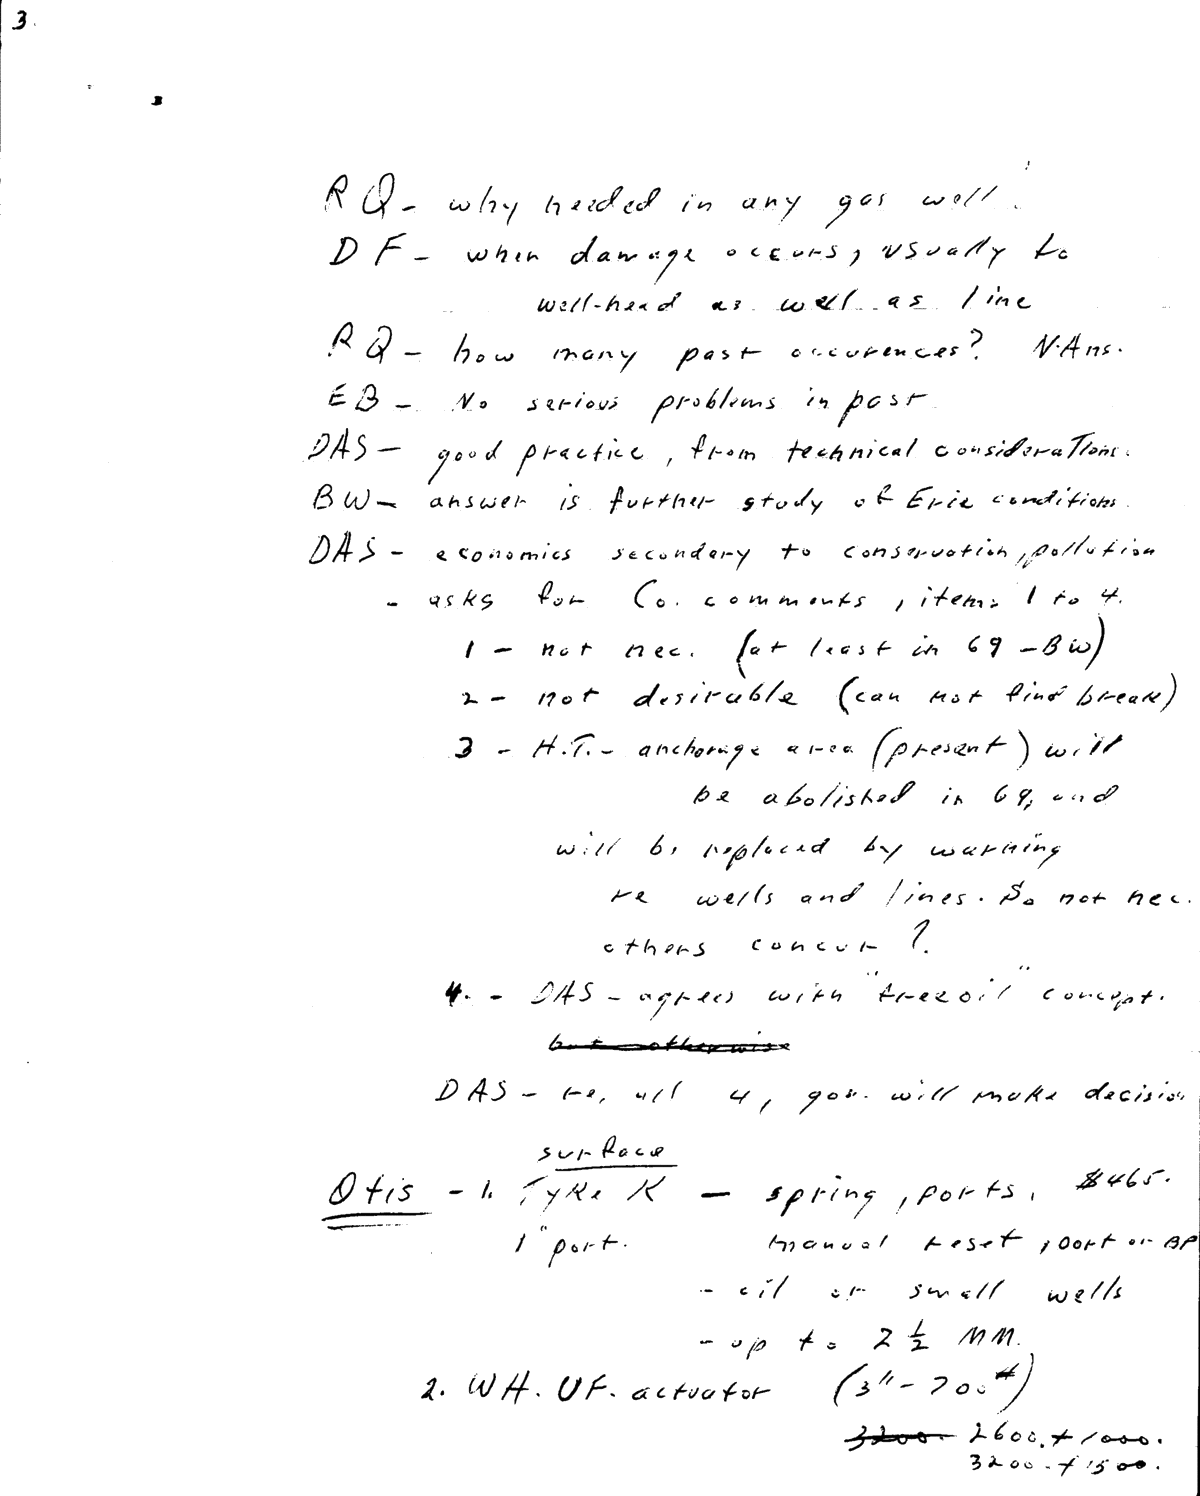 3.
RQ - why needed in any gas well.
DF - when damage occurs, usually to
well-head as well as line
RQ - how many past occurences? N.Ans.
EB - No serious problems in past
DAS - good practice, from technical considerations.
BW - answer is further study of Erie conditions.
DAS - economics secondary to conservation, pollution
- asks for Co. comments, items 1 to 4.
1 - not nec. (at least in 69 - BW)
2 - not desirable (can not find break)
3 - H.T. - anchorage area (present) will
be abolished in 69, and
will be replaced by warning
re wells and lines. So not nec.
others concur?
4. - DAS - agrees with "free oil" concept.
but otherwise
DAS - re. all 4, gov. will make decision
surface
Otis - 1. Tyke K - spring, ports, $465.
1" port. manual reset, port or BP
- oil or small wells
- up to 2 1/2 MM.
2. WH. UF. actuator (3" - 700#)
3200. 2600. + 1000.
3200. + 1500.